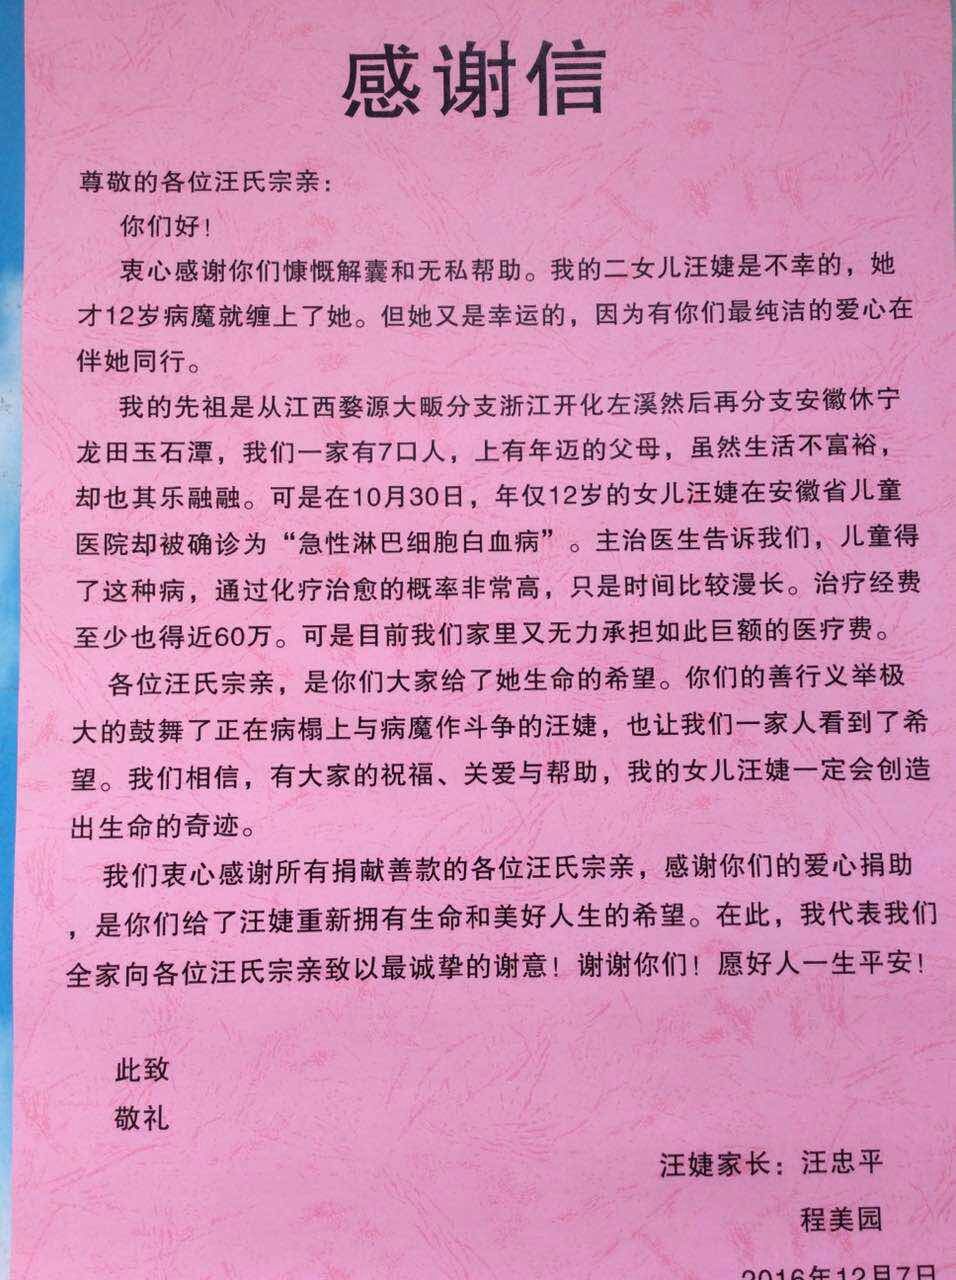 感谢信
尊敬的各位汪氏宗亲：
你们好！
衷心感谢你们慷慨解囊和无私帮助。我的二女儿汪婕是不幸的，她
才12岁病魔就缠上了她。但她又是幸运的，因为有你们最纯洁的爱心在
伴她同行。
我的先祖是从江西婺源大畈分支浙江开化左溪然后再分支安徽休宁
龙田玉石潭，我们一家有7口人，上有年迈的父母，虽然生活不富裕，
却也其乐融融。可是在10月30日，年仅12岁的女儿汪婕在安徽省儿童
医院却被确诊为“急性淋巴细胞白血病”。主治医生告诉我们，儿童得
了这种病，通过化疗治愈的概率非常高，只是时间比较漫长。治疗经费
至少也得近60万。可是目前我们家里又无力承担如此巨额的医疗费。
各位汪氏宗亲，是你们大家给了她生命的希望。你们的善行义举极
大的鼓舞了正在病榻上与病魔作斗争的汪婕，也让我们一家人看到了希
望。我们相信，有大家的祝福、关爱与帮助，我的女儿汪婕一定会创造
出生命的奇迹。
我们衷心感谢所有捐献善款的各位汪氏宗亲，感谢你们的爱心捐助
，是你们给了汪婕重新拥有生命和美好人生的希望。在此，我代表我们
全家向各位汪氏宗亲致以最诚挚的谢意！谢谢你们！愿好人一生平安！
此致
敬礼
汪婕家长：汪忠平
程美园
2016年12月7日